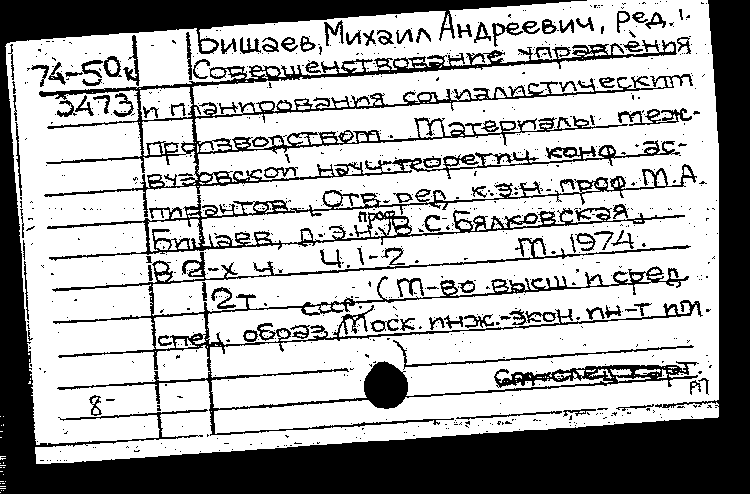 Бишаев, Михаил Андреевич, ред.
74-50к Совершенствование управления
3473 и планирования социалистическим
производством. Материалы меж-
вузовской науч.-теоретич. конф. ас-
пирантов. Отв. ред. к.э.н., проф. М.А.
Бишаев, д.э.н., проф. В.С. Бялковская.
В 2-х ч. Ч. 1-2. М., 1974.
2т. (М-во высш. и сред.
спец. образ. СССР. Моск. инж.-экон. ин-т им.
См. след. карт.
8-
РП